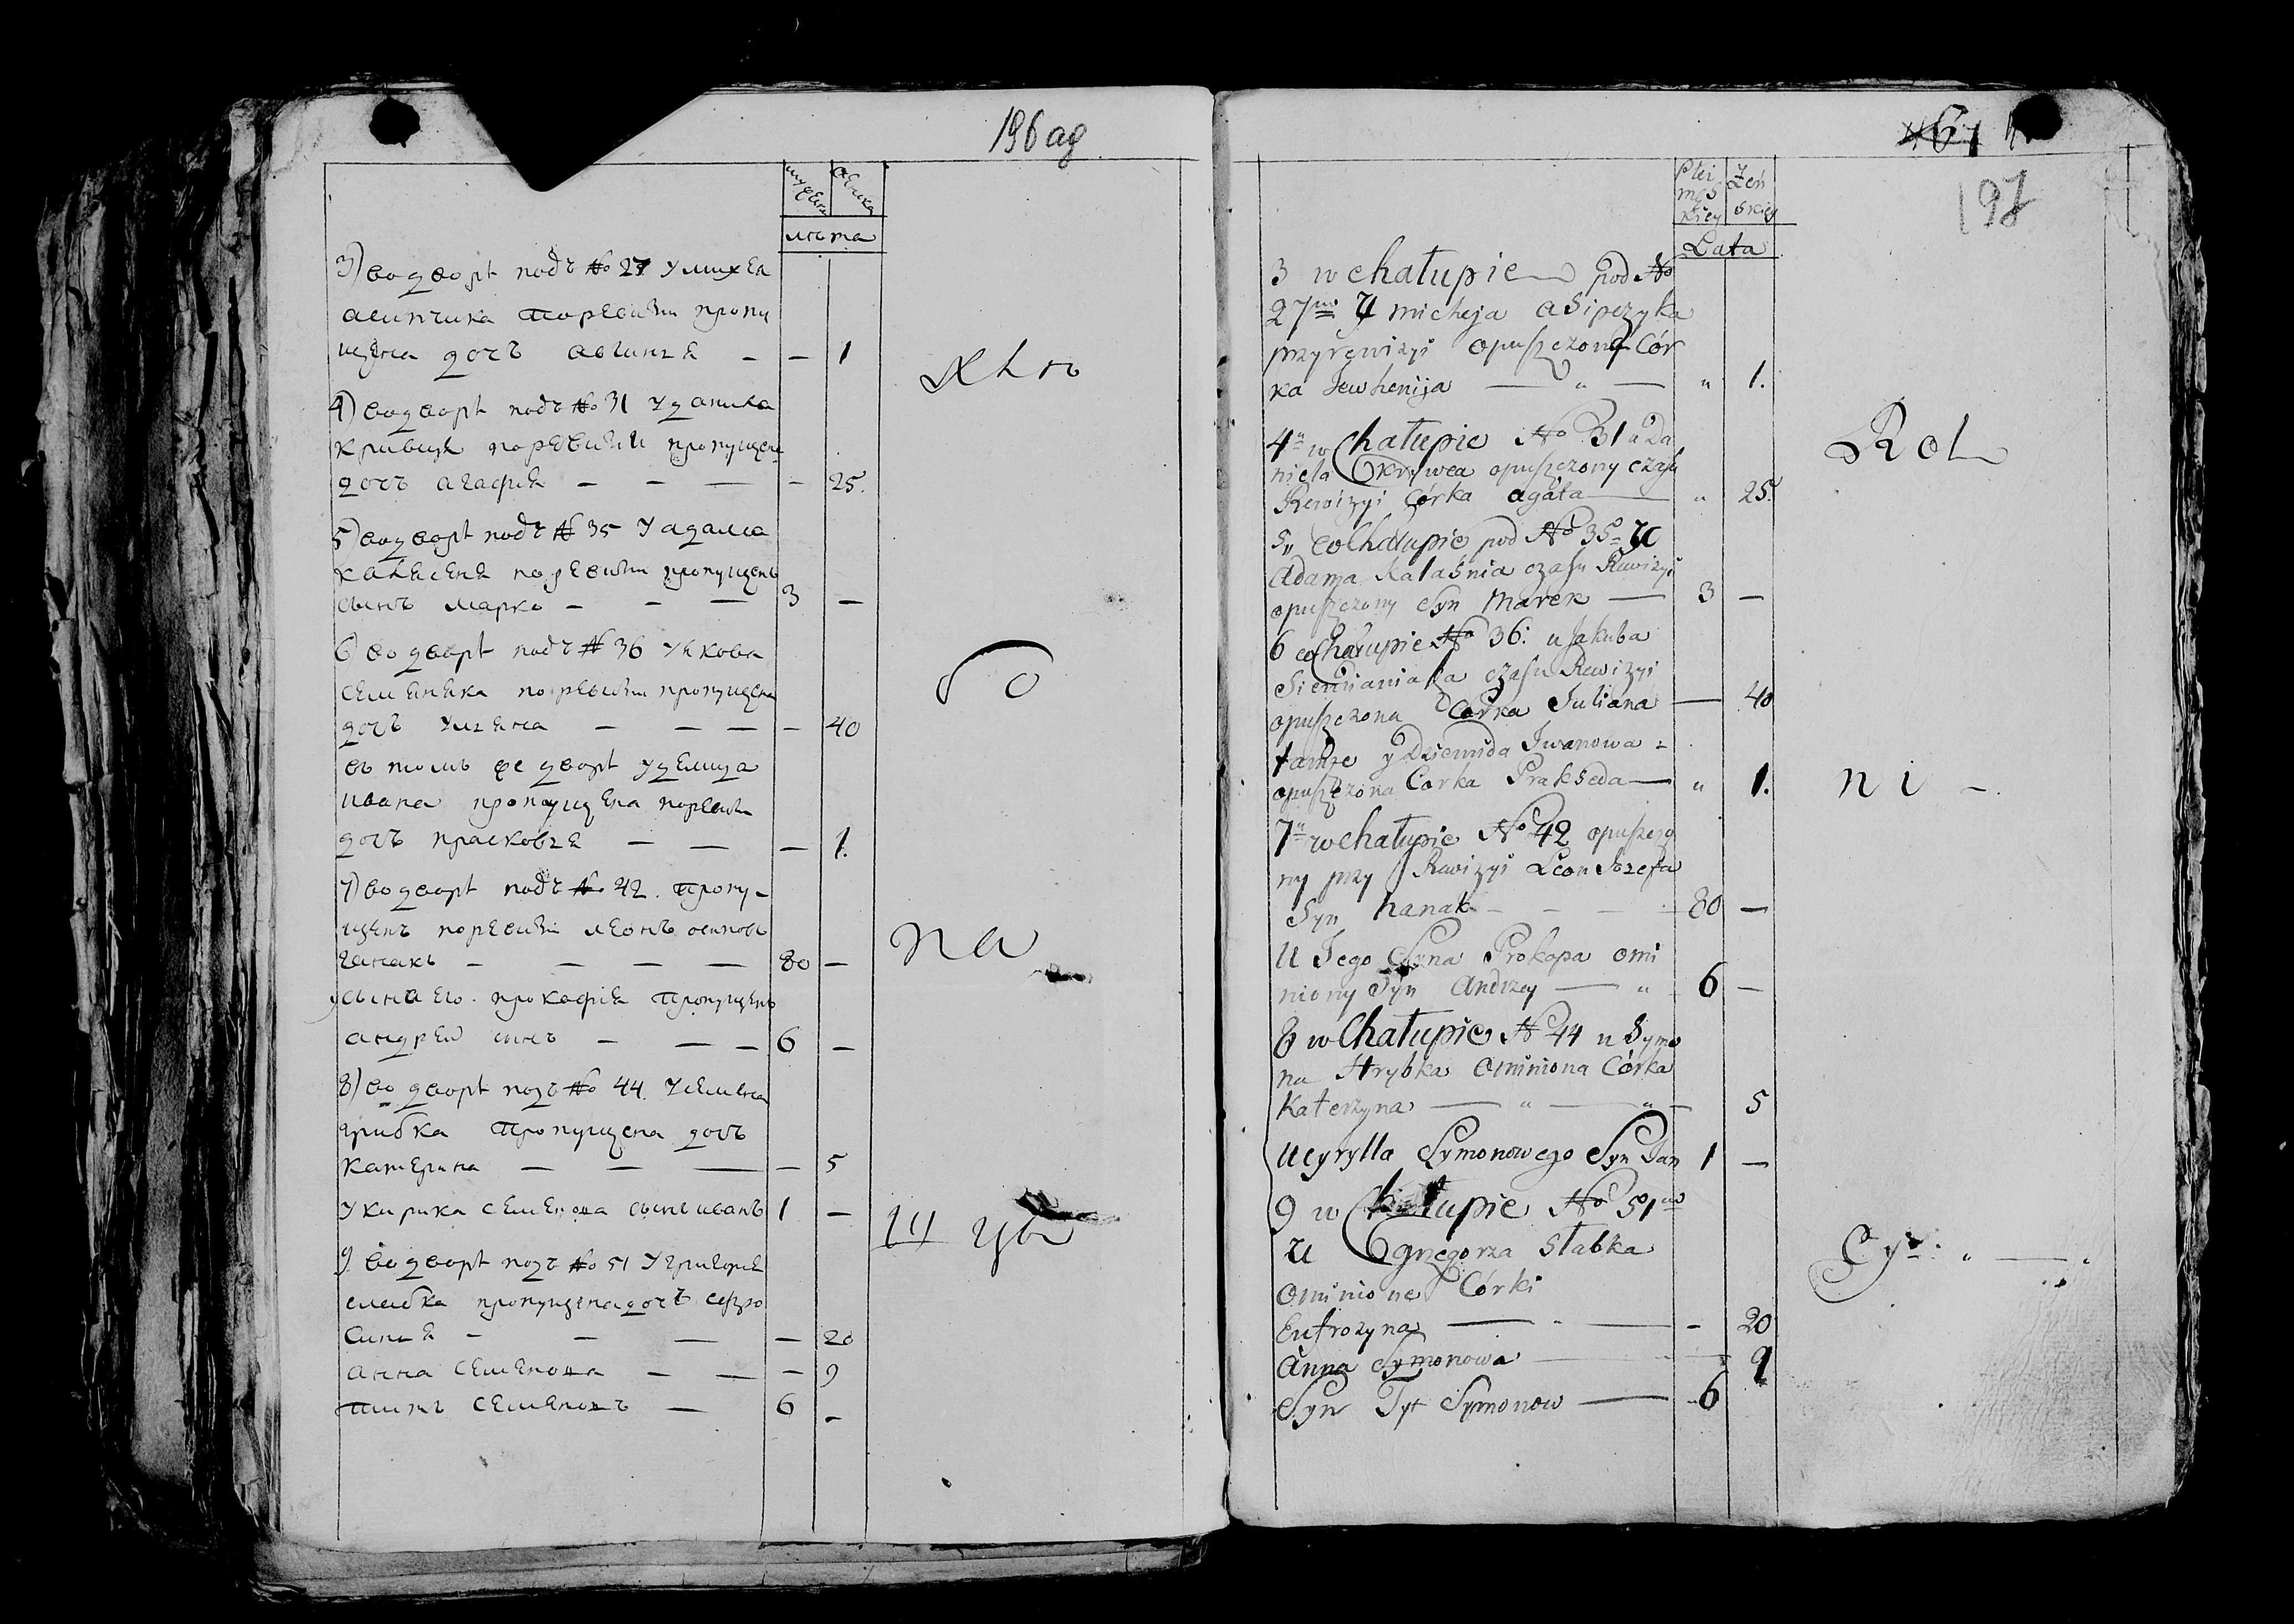 196 ад
мужеска
женска
лѣта
3) во дворѣ подъ № 27 у михея
асипчика по ревизіи пропу
щена дочъ авгинья — — 1
4) во дворѣ подъ № 31 у данила
кривця по ревизіи пропущена
дочъ агафія — — — 25.
5) во дворѣ подъ № 35 у адама
калесня по ревизіи пропущенъ
сынъ марко — — — 3 —
6) во дворѣ подъ № 36 у якова
семеняка по ревизіи пропущена
дочъ ульяна — — — — 40
въ томъ же дворѣ у демида
ивана пропущена по ревизіи
дочъ прасковья — — — 1.
7) во дворѣ подъ № 42. пропу-
щенъ по ревизіи леонъ осиповъ
ганакъ — — — — 80 —
у сына его прокофія пропущенъ
андрей сынъ — — — 6 —
8) во дворѣ подъ № 44. у семена
грибка пропущена дочъ
катерина — — — — 5
у кирика семенова сынъ иванъ 1 —
9) во дворѣ подъ № 51 у григорія
слабка пропущена дочъ
— — — — 20
анна семенова — — — 9
титъ семеновъ — 6 —
на
61
197
Płci
męs
kiey
Żeń
skiey
Lata
3 w chałupie pod No
27mo U micheja asipczyka
przy rewizyi opuszczona Cór
ka Jewhenija — " — " 1.
4" w Chałupie No 31 u Da
niela Krywca opuszczony czasu
Rewizyi Córka agata — " 25.
5" w Chałupie pod No 35. U
Adama Kalaśnia czasu Rewizyi
opuszczony Syn Marek — 3 —
6 w Chałupie No 36: u Jakuba
Siemianiaka czasu Rewizyi
opuszczona Córka Juliana — 40
tamże y Dziemida Iwanowa
opuszczona Corka Prakseda — " 1.
7" w chałupie No 42 opuszczo
ny przy Rewizyi Leon Józefa
Syn hanak — — — 80 —
U Jego Syna Prokopa omi
niony Syn Andrzey — " 6 —
8 w Chałupie No 44 u Symo
na Hrybka Ominiona Córka
Katerzyna — " — " — 5
U cyrylla Symonowego Syn Jan 1 —
9 w Chałupie No 51mo
U grzegorza Słabka
Ominione Córki
Eufrozyna — " — — 20
Anna Symonowa — 9
Syn Tyt Symonow — 6
ni -